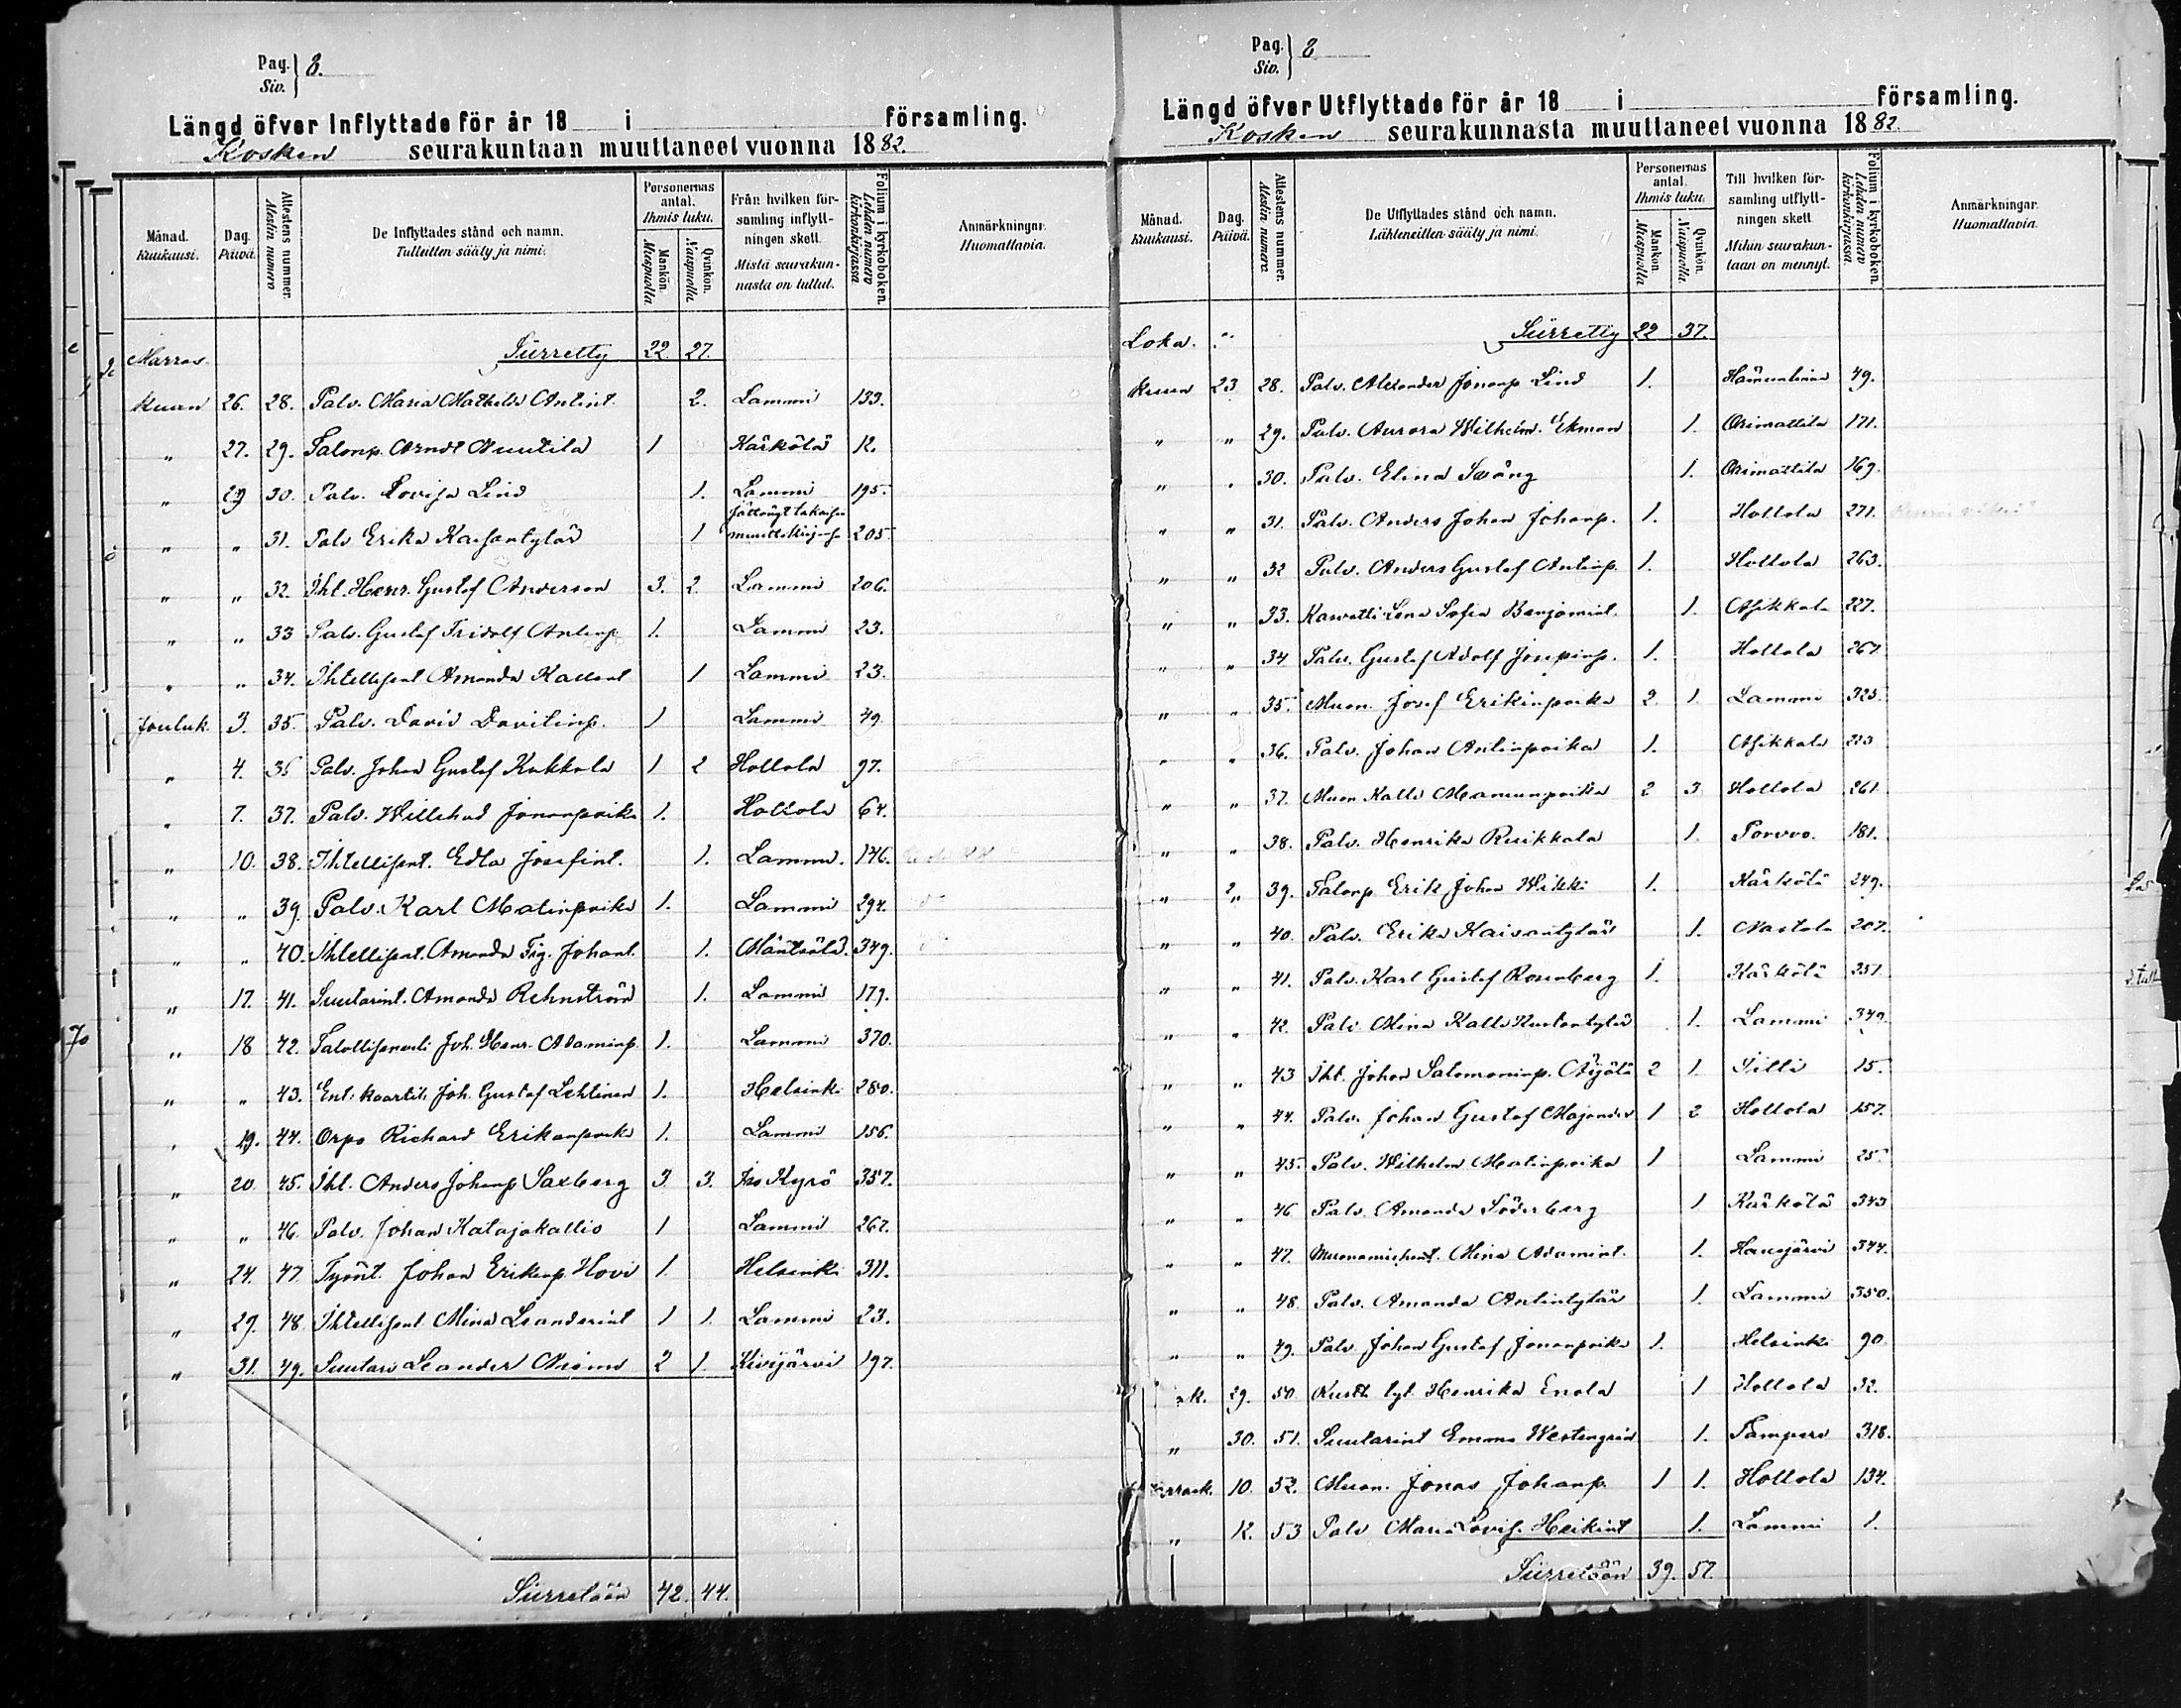 Pag. Siv. 8.
Längd öfver Inflyttade för år 18 i församling.
Kosken seurakuntaan muuttaneet vuonna 1882.
Månad. Kuukausi.
Dag. Päivä.
Attestens nummer. Atestin numero
De Inflyttades stånd och namn. Tulleitten sääty ja nimi.
Personernas antal. Ihmis luku.
Mankön. Miespuolia
Qvinkön. Naispuolia
Från hvilken församling inflyttningen skett. Mistä seurakunnasta on tultut.
Folium i kyrkoboken. Lehden numero kirkonkirjassa
Anmärkningar. Huomattavia.
Marras Siirretty 22 27.
kuun 26. 28. Palv. Maria Mathilda Antint. 2. Lammi 133.
„ 27. 29. Talonp. Arndt Nuutila 1 Kärkölä 12.
„ 29 30. Palv. Lovisa Lind 1. Lammi 195.
„ „ 31. Palv Erika Kaisantytär 1 205
„ „ 32. Iht. Henr. Gustaf Anderson 3. 2. Lammi 206.
„ „ 33 Palv. Gustaf Fridolf Antinp. 1. Lammi 23.
„ „ 34. Ihtellisent Amanda Kallent 1 Lammi 23.
Jouluk. 3. 35. Palv. David Davitinp. 1 Lammi 49
„ 4. 36 Palv. Johan Gustaf Kukkola 1 2 Hollola 97.
„ 7. 37. Palv. Willehad Jonanpoika 1. Hollola 64.
„ 10. 38. Ihtellisent. Edla Josefint. 1. Lammi. 146.
„ „ 39. Palv. Karl Matinpoika 1. Lammi 294.
„ „ 40. Ihtellisent. Amanda Frg. Johant. 1. Mäntsälä. 349.
„ 17. 41. Suutarint. Amanda Rehnström 1. Lammi 179.
„ 18 42. Joh. Henr. Adaminp. 1. Lammi 370.
„ „ 43. Ent. kaartil. Joh. Gustaf Lehtinen 1. Helsinki 280.
„ 19. 44. Orpo Richard Erikanpoika 1. Lammi 156.
„ 20. 45. Iht. Anders Johanp Saxberg 3 3. Iso Kyrö 357.
„ „ 46. Palv. Johan Katajakallio 1 Lammi 267.
„ 24. 47 Työnt. Johan Erikinp. Hovi 1. Helsinki 311.
„ 29. 48. Ihtellisent Mina Leanderint 1 1. Lammi 23.
„ 31. 49. Suutari Leander Niemi 2 1. Kivijärvi 197.
Siirretään 42. 44.
Pag. Siv. 8
Längd öfver Utflyttade för år 18 i församling.
Kosken seurakunnasta muuttaneet vuonna 1882.
Månad. Kuukausi.
Dag. Päivä.
Attestens nummer. Atestin numero
De Utflyttades stånd och namn. Lähteneitten sääty ja nimi.
Personernas antal. Ihmis luku.
Mankön. Miespuolia
Qvinkön. Naispuolia.
Till hvilken församling utflyttningen skett. Mihin seurakuntaan on mennyt.
Folium i kyrkoboken. Lehden numero kirkonkirjassa.
Anmärkningar. Huomattavia.
Loka. Siirretty 22 37.
kuun 23 28. Palv. Alexander Jonanp Lind 1. Hämenlinna 49.
„ „ 29. Palv. Aurora Wilhelm. Ekman 1. Orimattila 171.
„ „ 30. Palv. Elina Swäng 1. Orimattila 169.
„ „ 31. Palv. Anders Johan Johanp. 1. Hollola 271.
„ „ 32 Palv. Anders Gustaf Antinp. 1. Hollola 263.
„ „ 33. Kasvatti Lena Sofia Benjamint. 1. Asikkala 227.
„ „ 34 Palv. Gustaf Adolf Josepinp. 1. Hollola 267
„ „ 35. Muon. Josef Erikinpoika 2. 1. Lammi 325.
„ „ 36. Palv. Johan Antinpoika 1. Asikkala 223
„ „ 37. Muon Kalle Manuunpoika 2 3 Hollola 261.
„ „ 38. Palv. Henrika Ruikkala 1. Porvoo. 181.
„ „ 39. Talonp Erik Johan Wikki 1. Kärkölä 249.
„ „ 40. Palv. Erika Kaisantytär 1. Nastola 207.
„ „ 41. Palv. Karl Gustaf Rosenberg 1. Kärkölä 351
„ „ 42. Palv Mina Kalle Kustantytär 1. Lammi 349.
„ „ 43 Iht. Johan Salomoninp. Äijälä 2 1. Iitti 15.
„ „ 44. Palv. Johan Gustaf Majander 1 2 Hollola 157.
„ „ 45. Palv. Wilhelm Matinpoika 1 Lammi 25.
„ „ 46 Palv. Amanda Söderberg 1 Kärkölä 343
„ „ 47. Muonamiehent. Mina Adamint. 1. Hausjärvi 344.
„ „ 48. Palv. Amanda Antintytär 1. Lammi 350.
„ „ 49. Palv Johan Gustaf Jonanpoika 1. Helsinki 90.
k. 29. 50. tyt. Henrika Enola 1 Hollola 32.
„ 30. 51. Suutarint Emma Westengrin 1. Tampere 318.
10. 52. Muon. Jonas Johanp. 1 1. Hollola 134.
„ 12. 53 Palv Maria Lovis. Heikint 1. Lammi 1.
Siirretään 39. 57.